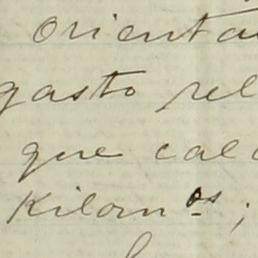 orienta
gasto rel
que calc
Kilomos;